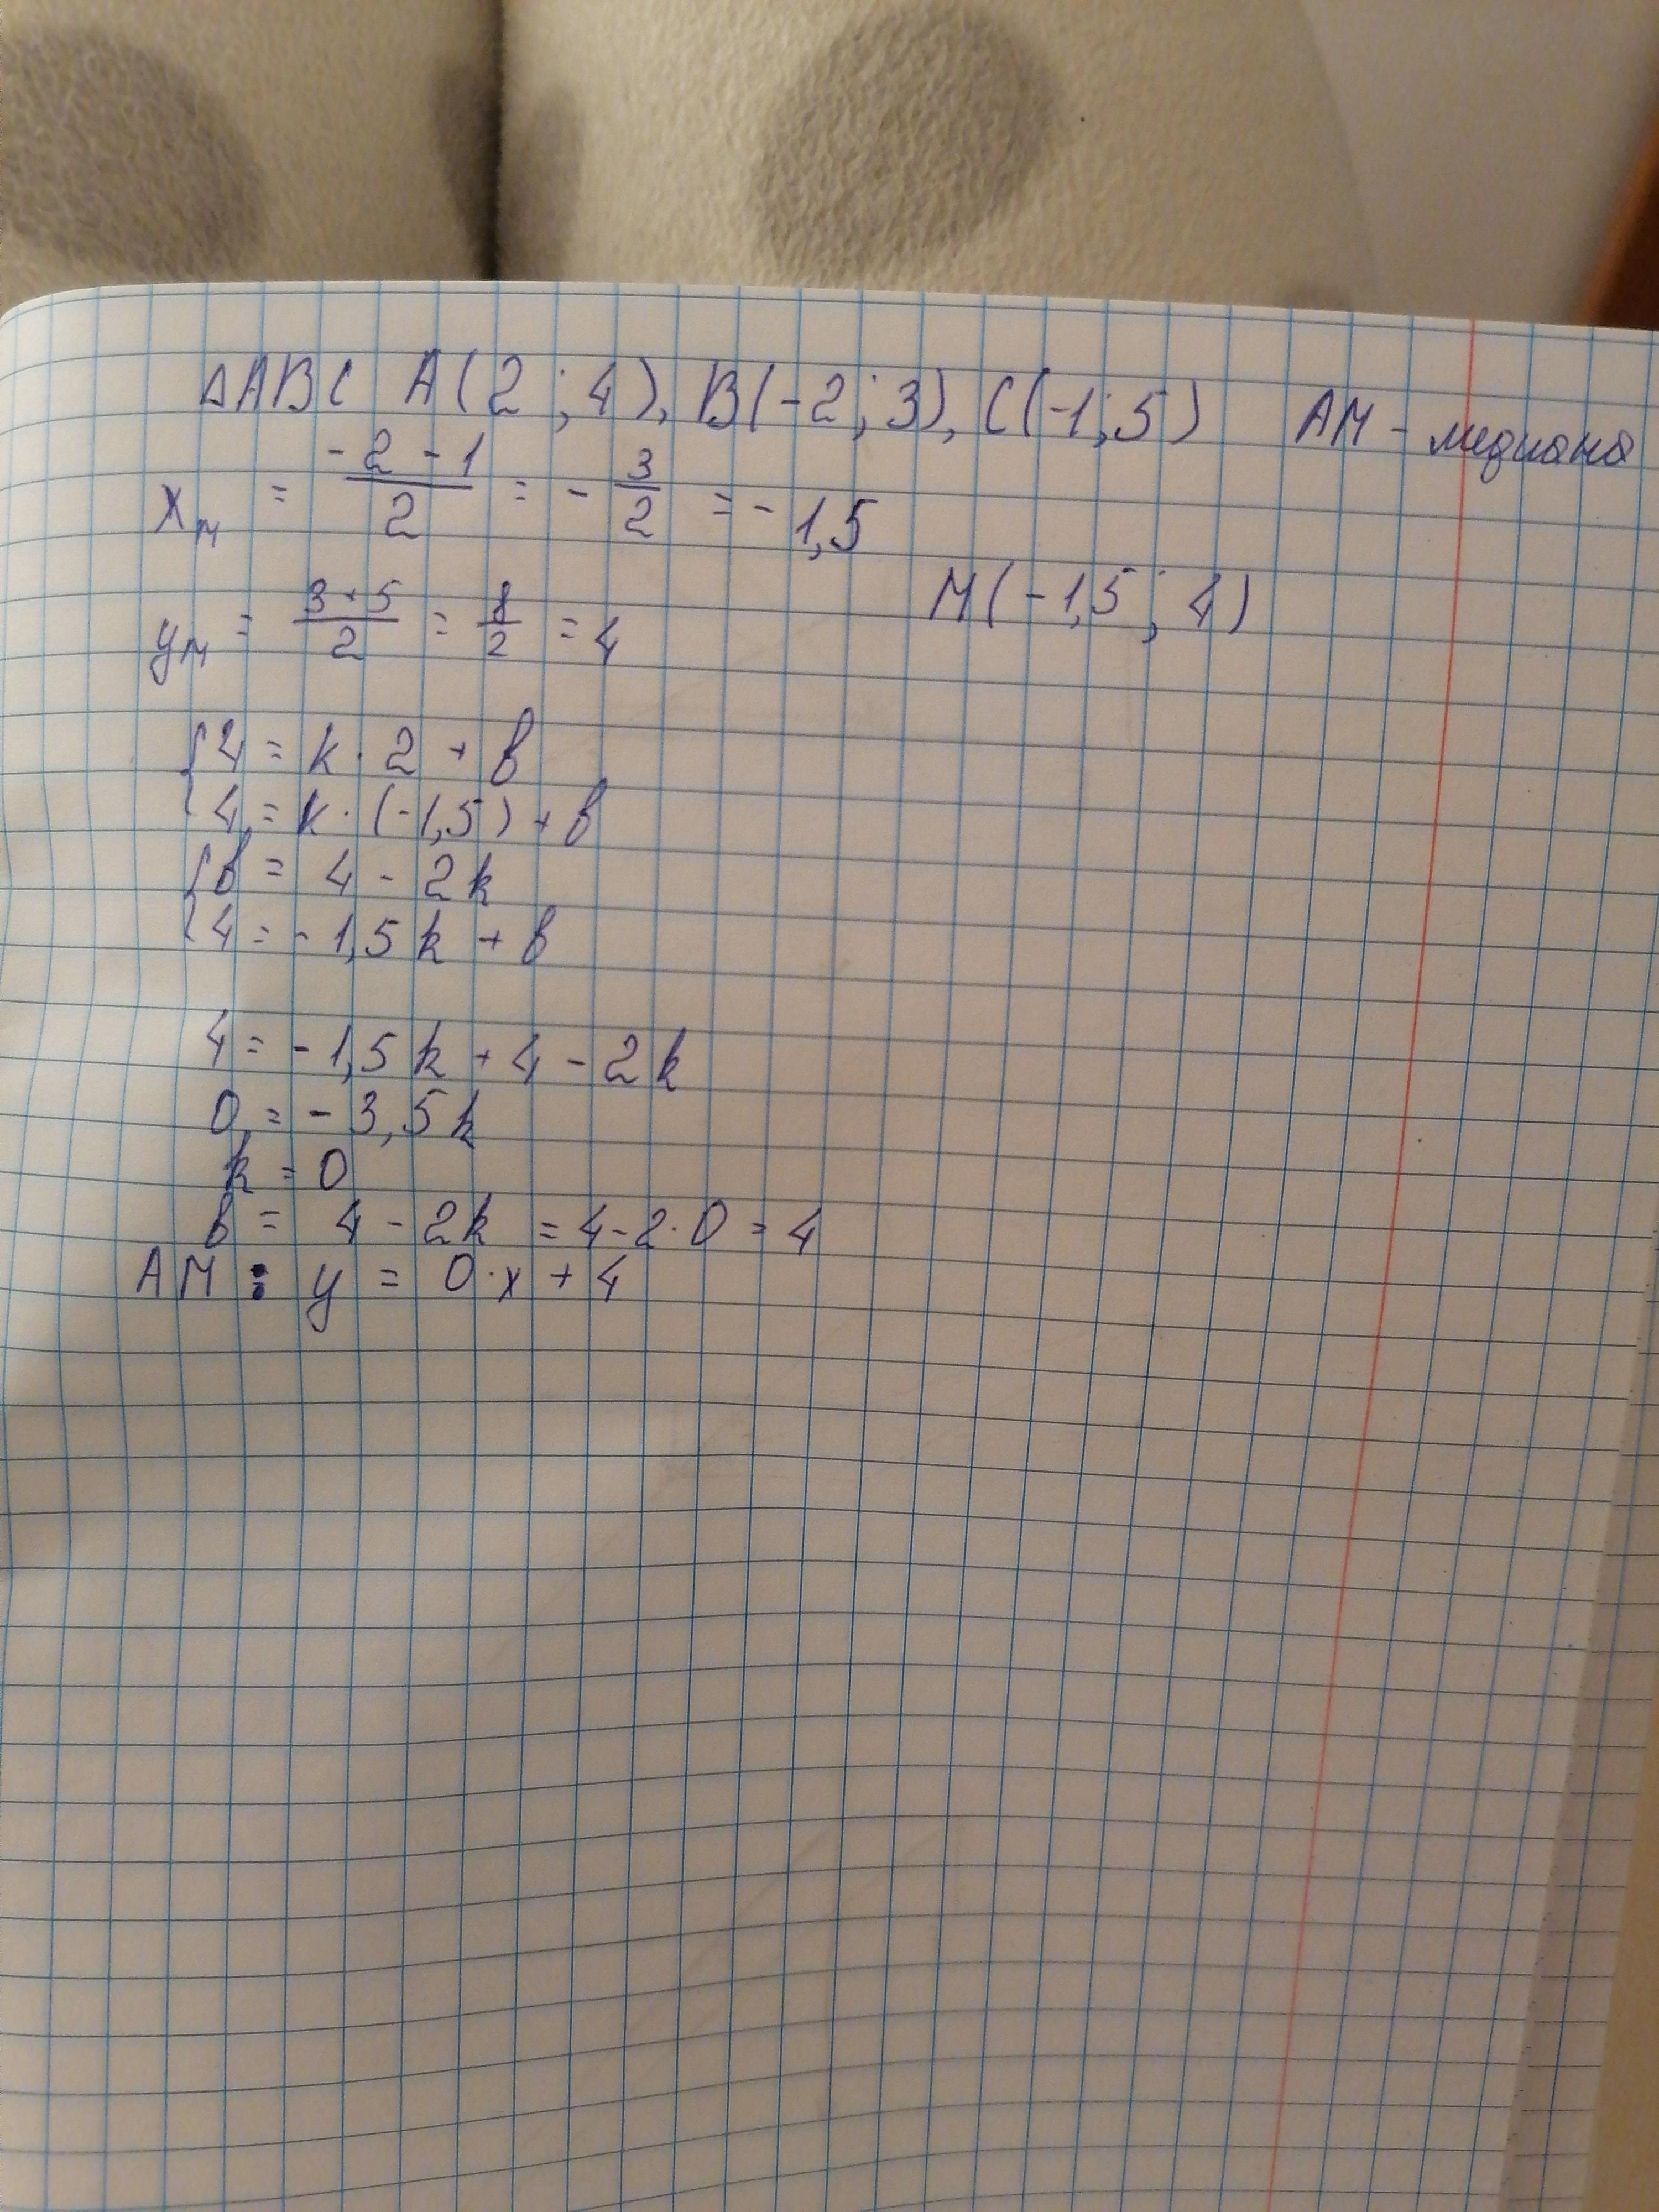 △ABC A(2;4), B(-2;3), C(-1;5) AM - медиана
xм = (-2-1)/2 = -3/2 = -1,5
yм = (3+5)/2 = 8/2 = 4 M(-1,5; 4)
{4 = k·2 + b
{4 = k·(-1,5) + b
{b = 4 - 2k
{4 = -1,5k + b
4 = -1,5k + 4 - 2k
0 = -3,5k
k = 0
b = 4 - 2k = 4-2·0 = 4
AM: y = 0·x + 4